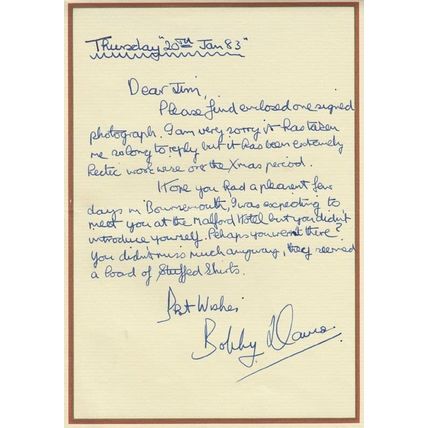 Thursday "20TH Jan 83"
Dear Jim,
Please find enclosed one signed
photograph. I am very sorry it has taken
me so long to reply but it has been extremely
hectic work wise over the Xmas period.
Hope you had a pleasant few
days in Bournemouth, I was expecting to
meet you at the Hotel but you didn't
introduce yourself. Perhaps you went there?
You didn't miss much anyway, they seemed
a load of Stuffed Shirts.
Best Wishes
Bobby